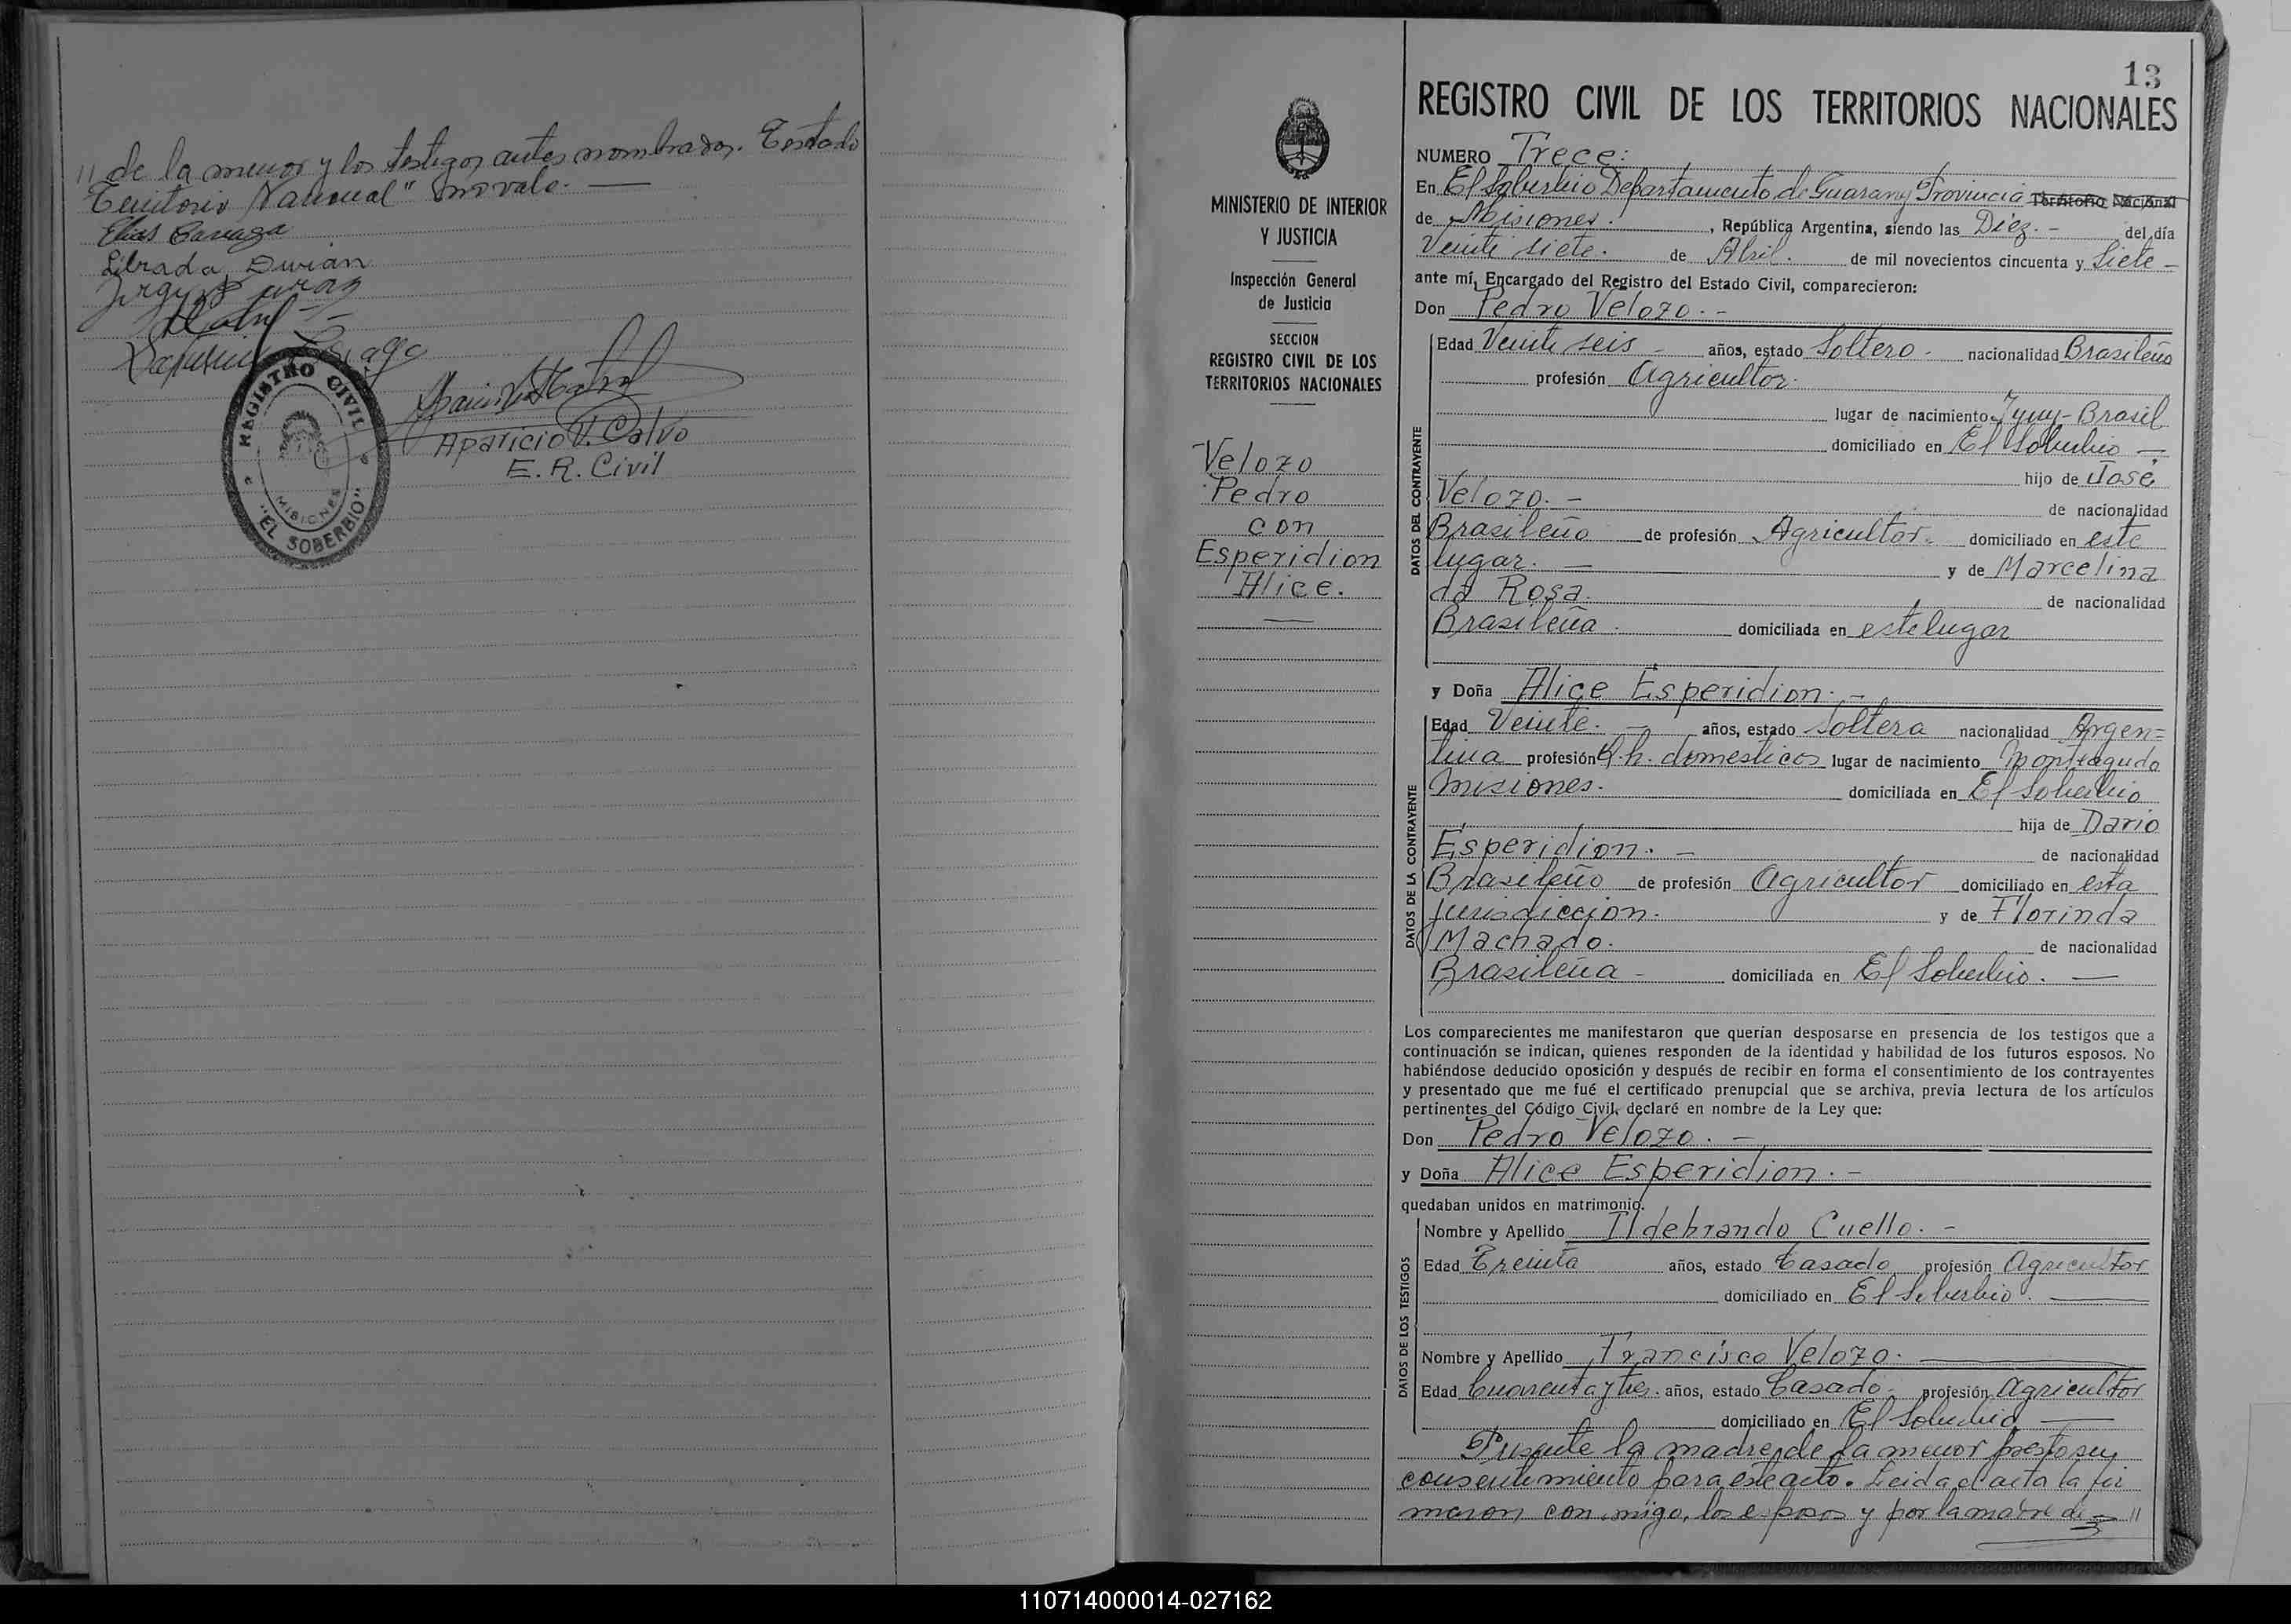 // de la menor y los testigos antes nombrados. Testado
Territorio Nacional" no vale. —
Elias
Librada Duran
REGISTRO CIVIL
MISIONES
"EL SOBERBIO"
Aparicio V. Calvo
E. R. Civil
MINISTERIO DE INTERIOR
Y JUSTICIA
Inspección General
de Justicia
SECCION
REGISTRO CIVIL DE LOS
TERRITORIOS NACIONALES
Velozo
Pedro
con
Esperidion
Alice.
13
REGISTRO CIVIL DE LOS TERRITORIOS NACIONALES
NUMERO Trece:
En El Soberbio Departamento de Guarany Provincia Territorio Nacional
de Misiones. , República Argentina, siendo las Diez. - del día
Veinte siete. de Abril. de mil novecientos cincuenta y Siete -
ante mí, Encargado del Registro del Estado Civil, comparecieron:
Don Pedro Velozo. -
DATOS DEL CONTRAYENTE
Edad Veinte seis - años, estado Soltero - nacionalidad Brasileño
profesión Agricultor.
lugar de nacimiento Yyuy - Brasil
domiciliado en El Soberbio —
hijo de José
Velozo. - de nacionalidad
Brasileño de profesión Agricultor. domiciliado en este
lugar. — y de Marcelina
da Rosa. de nacionalidad
Brasileña. domiciliada en este lugar
y Doña Alice Esperidion. -
DATOS DE LA CONTRAYENTE
Edad Veinte. - años, estado Soltera nacionalidad Argen=
tina profesión Q. h. domesticos lugar de nacimiento Monteagudo
Misiones. domiciliada en El Soberbio
hija de Dario
Esperidion. - de nacionalidad
Brasileño de profesión Agricultor domiciliado en esta
jurisdiccion. y de Florinda
Machado. de nacionalidad
Brasileña - domiciliada en El Soberbio. —
Los comparecientes me manifestaron que querían desposarse en presencia de los testigos que a
continuación se indican, quienes responden de la identidad y habilidad de los futuros esposos. No
habiéndose deducido oposición y después de recibir en forma el consentimiento de los contrayentes
y presentado que me fué el certificado prenupcial que se archiva, previa lectura de los artículos
pertinentes del Código Civil, declaré en nombre de la Ley que:
Don Pedro Velozo. -
y Doña Alice Esperidion. -
quedaban unidos en matrimonio.
DATOS DE LOS TESTIGOS
Nombre y Apellido Ildebrando Cuello. -
Edad Treinta años, estado Casado profesión Agricultor
domiciliado en El Soberbio. —
Nombre y Apellido Francisco Velozo. —
Edad Cuarenta y tres. años, estado Casado - profesión Agricultor
domiciliado en El Soberbio —
Presente la madre de la menor presto su
consentimiento para este acto. Leida el acta la fir
maron con migo, los esposos y por la madre de //
110714000014-027162